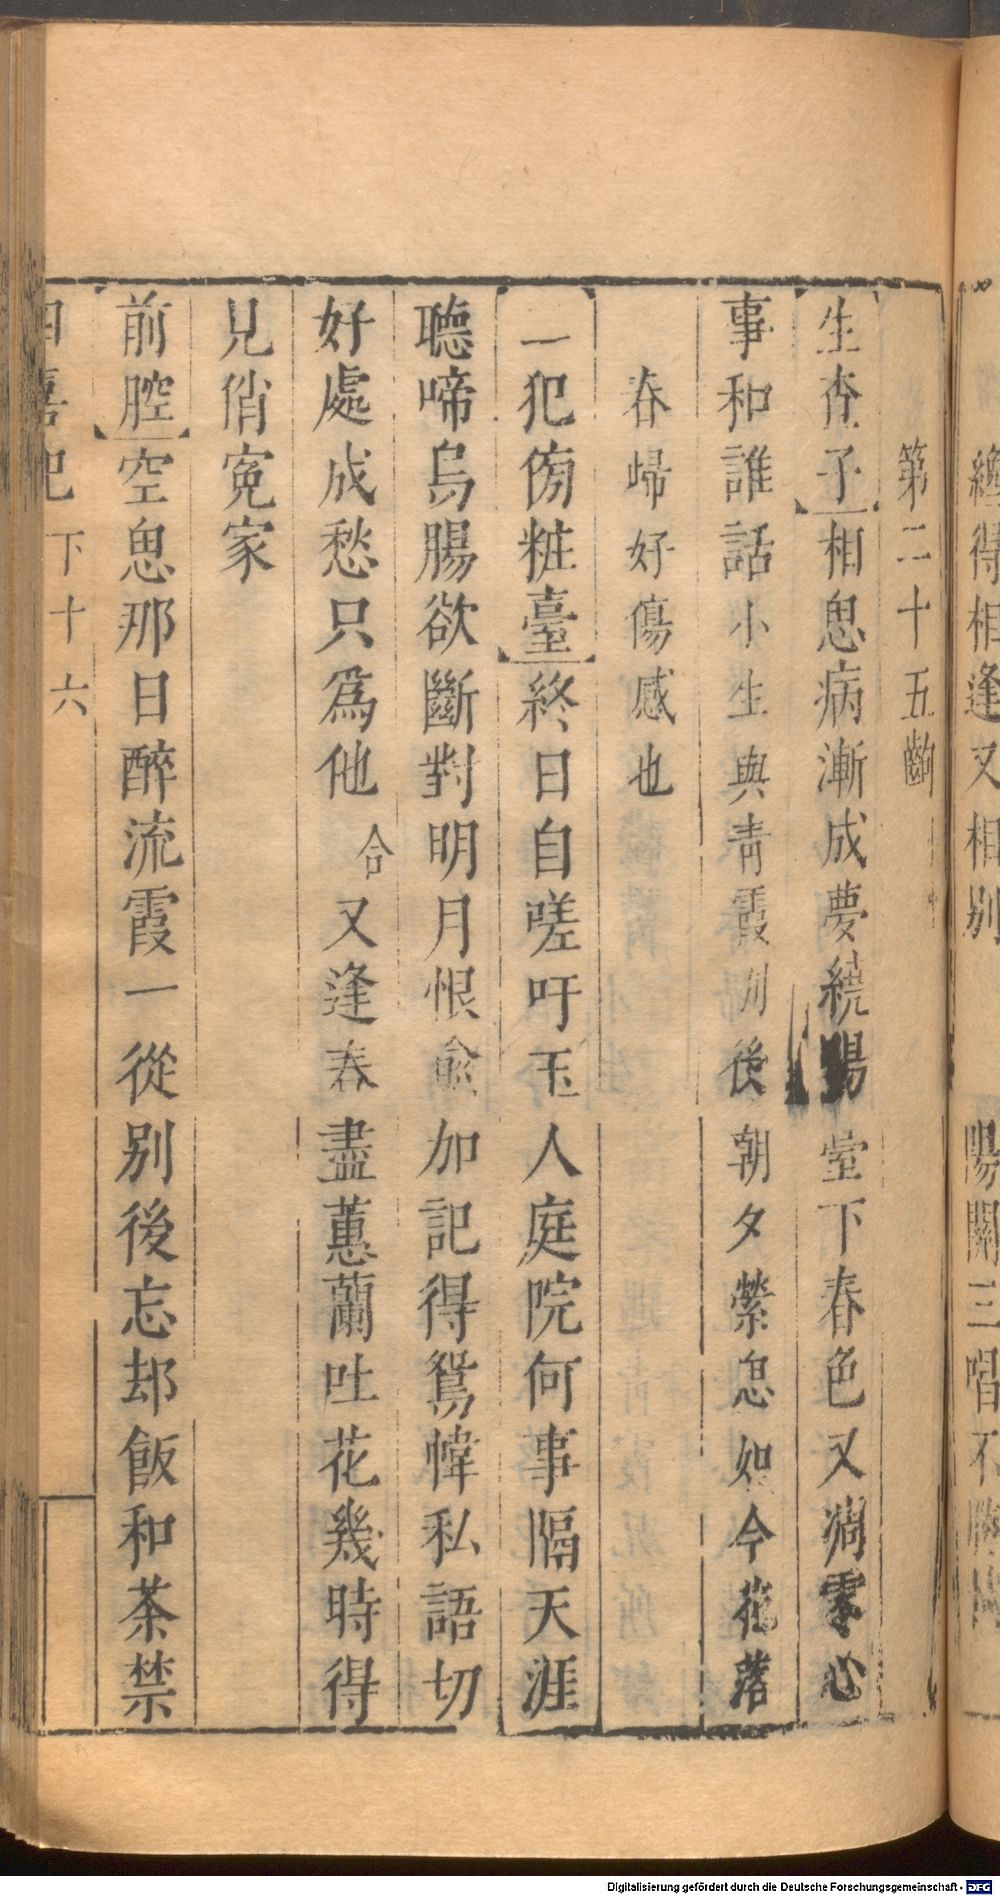 纔得相逢又相别　陽關三唱不
第二十五齣
生查子相思病漸成夢繞陽臺下春色又凋零心
事和誰話小生與青霞別後朝夕縈思如今花落
春歸好傷感也
一犯傍粧臺終日自嗟吁玉人庭院何事隔天涯
聽啼烏腸欲斷對明月恨愈加記得鴛幃私語切
好處成愁只為他合又逢春盡蕙蘭吐花幾時得
見俏寃家
前腔空思那日醉流霞一從别後忘却飯和茶禁
四喜記 下 十六
Digitalisierung gefördert durch die Deutsche Forschungsgemeinschaft - DFG